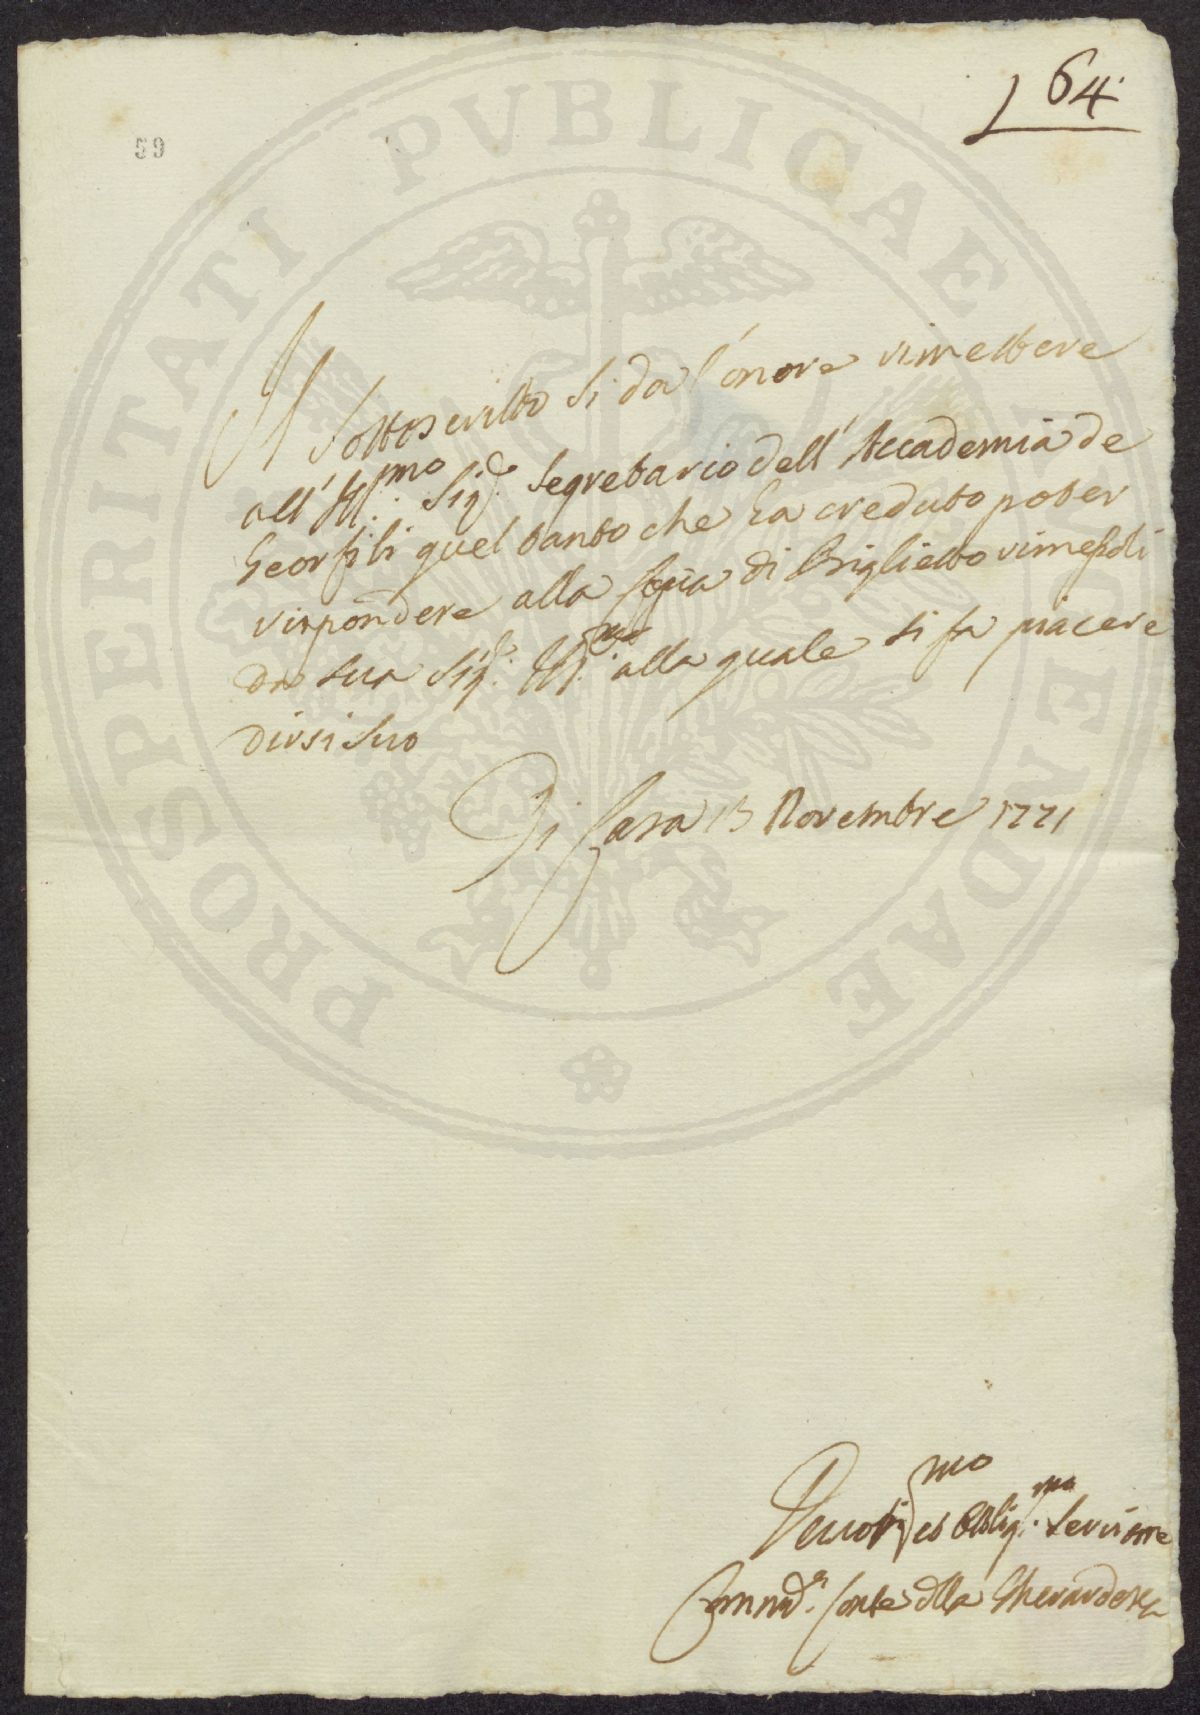 64.
59
Il Sottoscritto si da l'onore rimettere
all' Ill.mo Sig.r Segretario dell' Accademia de
Georgofili quel tanto che ha creduto poter
rispondere alla Copia di Biglietto rimessoli
da sua Sig.r Ill.ma alla quale si fa piacere
dirsi suo
Di Casa 13 Novembre 1771
Devotis.mo ed Obblig.mo Servitore
Conte della Gherardesca
PROSPERITATI PVBLICAE AVGENDAE